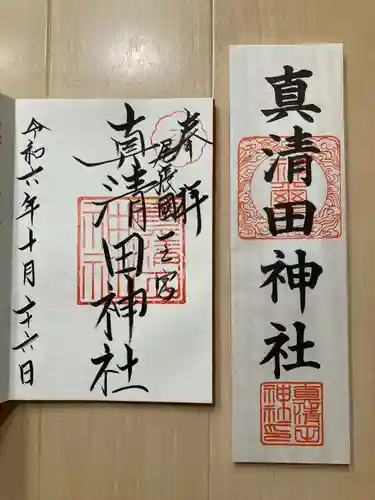 奉拝
尾張國一宮
真清田神社
令和六年十月二十六日
真清田神社
真清田
神社印